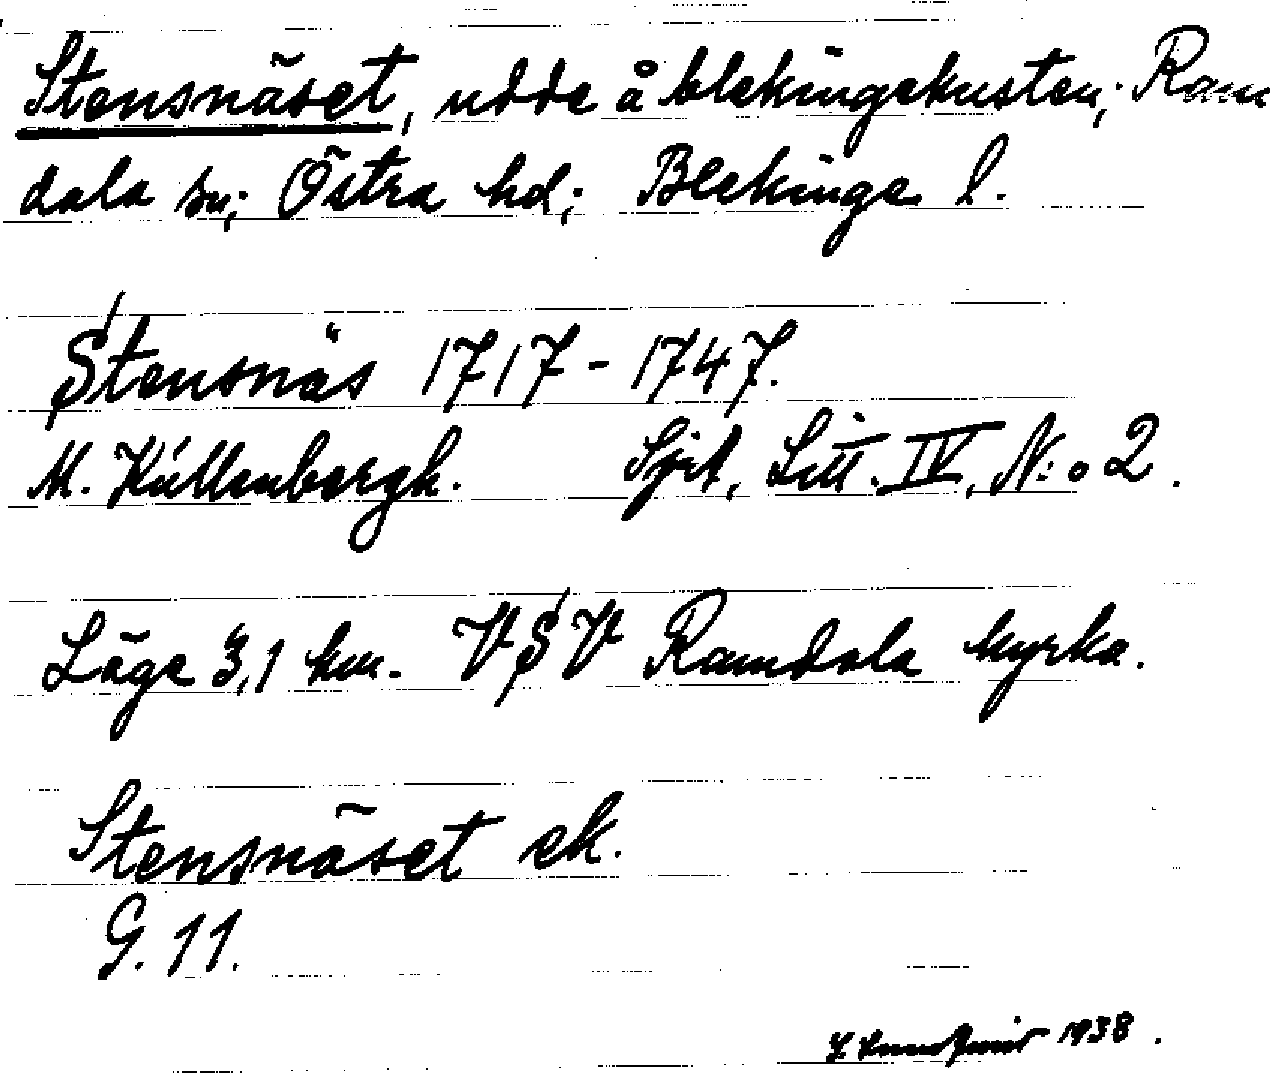 Stensnäset, udde å blekingekusten; Ram
dala sn; Östra hd; Blekinge l.
Stensnäs 1717-1747.
M. Kullenbergh. Sjit, Litt. IV, N:o 2.
Läge 3,1 km. VSV Ramdala kyrka.
Stensnäset ek.
G. 11.
1938.